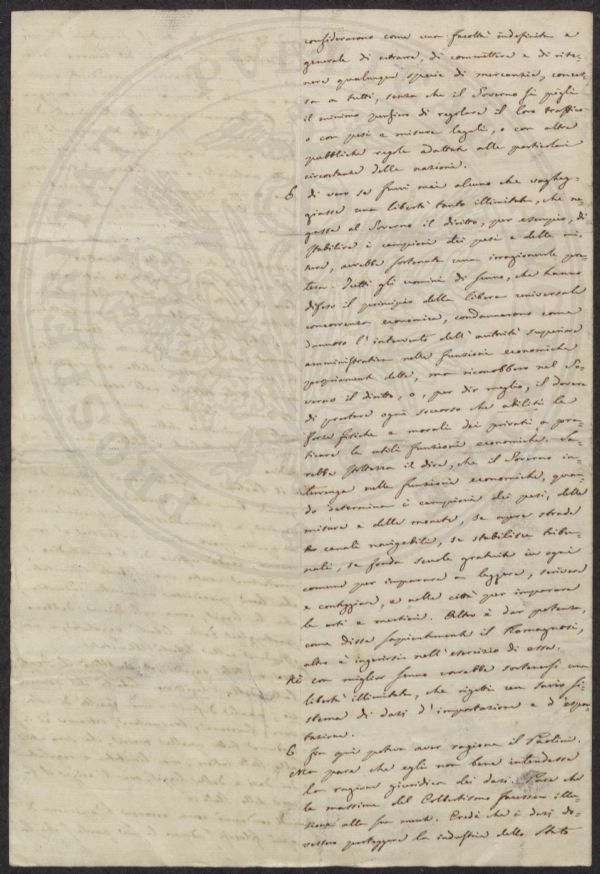 considerarono come una facoltà indefinita e
generale di estrarre, di commettere e di rite-
nere qualunque specie di mercanzie, conces-
sa a tutti, senza che il Governo si pigli
il minimo pensiero di regolare il loro traffico
o con pesi e misure legali, o con altre
pubbliche regole adattate alle particolari
circostanze della nazione.
E di vero se fuvvi mai alcuno che vagheg-
giasse una libertà tanto illimitata, che ne-
gasse al Governo il diritto, per esempio, di
stabilire i campioni dei pesi e delle mi-
sure, avrebbe sostenuta una irragionevole pre-
tesa. Tutti gli uomini di senno, che hanno
difeso il principio della libera universale
concorrenza economica, condannarono come
dannoso l'intervento dell'autorità superiore
amministrativa nelle funzioni economiche
propriamente dette, ma riconobbero nel Go-
verno il diritto, o, per dir meglio, il dovere
di prestare ogni soccorso che abiliti le
forze fisiche e morali dei privati a pra-
ticare le utili funzioni economiche. Sa-
rebbe stoltezza il dire, che il Governo in-
tervenga nelle funzioni economiche, quan-
do determina i campioni dei pesi, delle
misure e delle monete, se apre strade
e canali navigabili, se stabilisce tribu-
nali, se fonda scuole gratuite in ogni
comune per imparare a leggere, scrivere
e conteggiare, e nelle città per imparare
le arti e mestieri. Altro è dar potenza,
come disse sapientemente il Romagnosi,
altro è ingerirsi nell'esercizio di essa.
Nè con miglior senno sarebbe sostenersi una
libertà illimitata, che rigetti un savio si-
stema di dazi d'importazione e d'espor-
tazione.
E fin quì poteva aver ragione il Paolini.
Ma pare che egli non bene intendesse
la ragione giuridica dei dazi. Pare che
le massime del Colbertismo facessero illu-
sione alla sua mente. Credè che i dazi do-
vessero proteggere la industria dello Stato
PROSPERITATI PVB